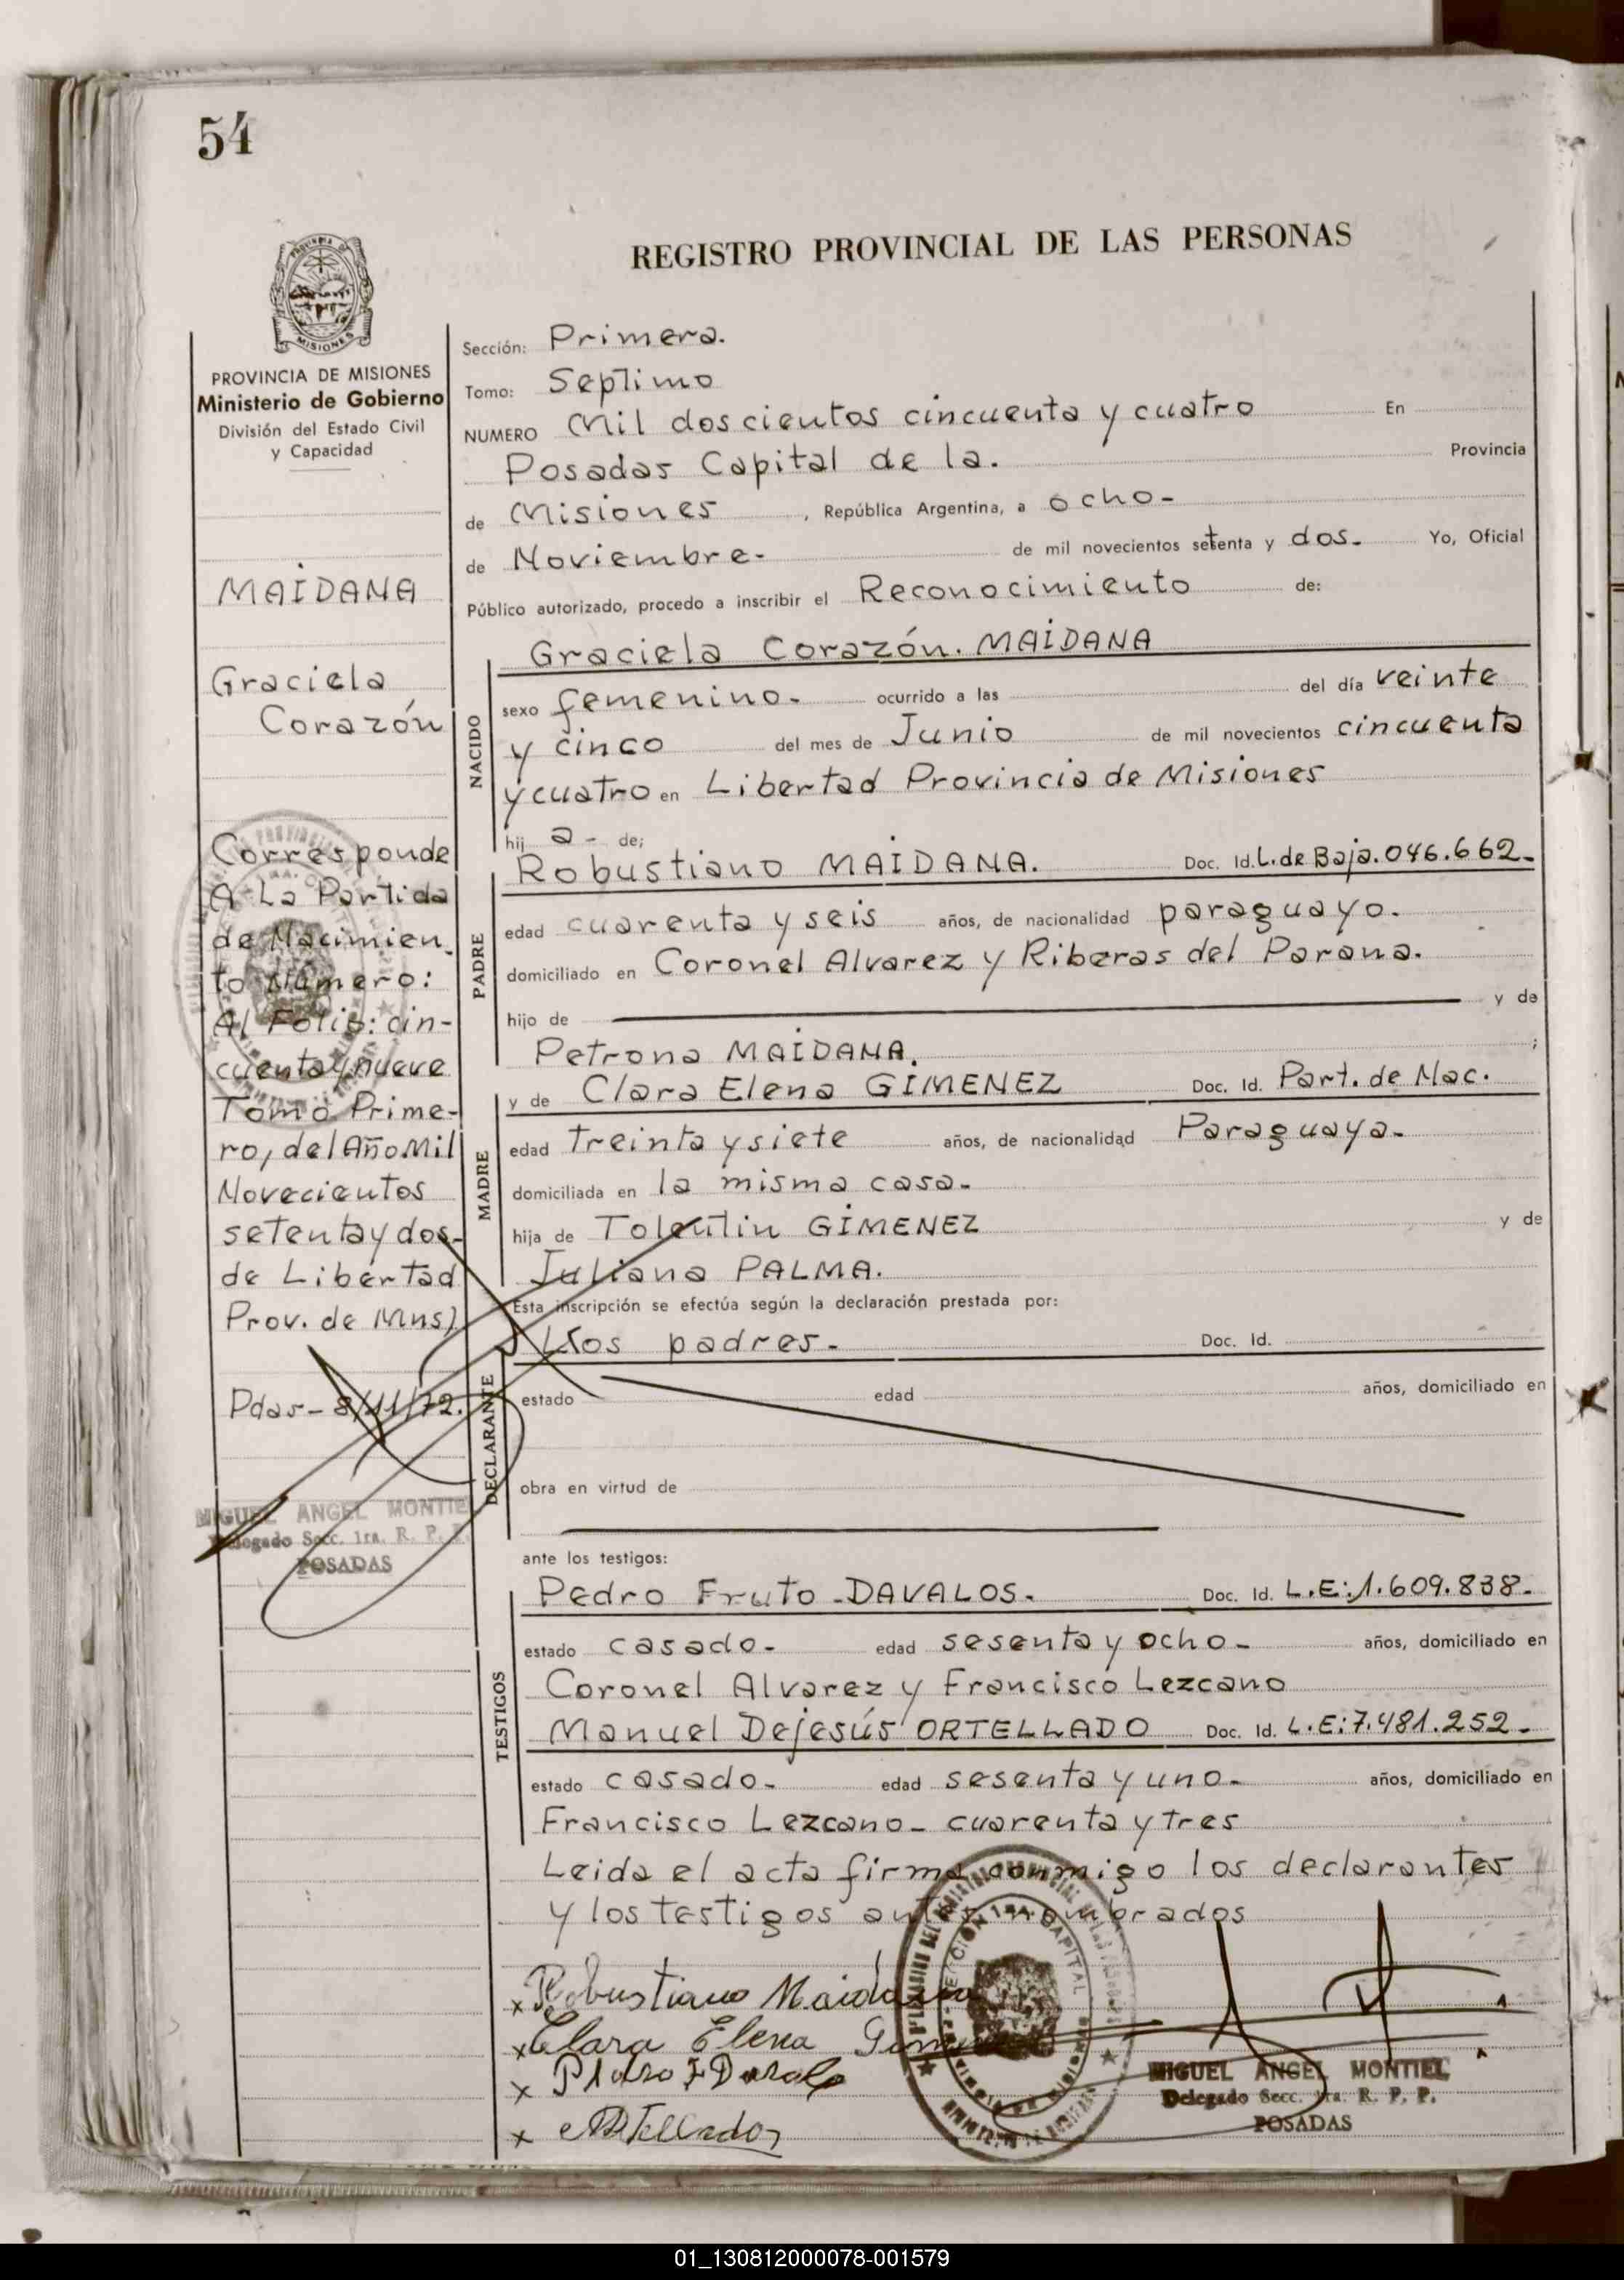 54
REGISTRO PROVINCIAL DE LAS PERSONAS
MISIONES
PROVINCIA DE MISIONES
Ministerio de Gobierno
División del Estado Civil
y Capacidad
MAIDANA
Graciela
Corazón
Corresponde
A La Partida
de Nacimien
to Número:
Al Folio: cin-
cuenta y nueve
Tomo Prime-
ro, del Año Mil
Novecientos
setenta y dos-
de Libertad
Prov. de Mns)
Pdas- 8/11/72.
MIGUEL ANGEL MONTIE
Delegado Secc. 1ra. R. P. P.
POSADAS
Sección: Primera.
Tomo: Septimo
NUMERO Mil doscientos cincuenta y cuatro En
Posadas Capital de la. Provincia
de Misiones, República Argentina, a ocho-
de Noviembre- de mil novecientos setenta y dos. Yo, Oficial
Público autorizado, procedo a inscribir el Reconocimiento de:
Graciela Corazón. MAIDANA
NACIDO
sexo femenino- ocurrido a las del día veinte
y cinco del mes de Junio de mil novecientos cincuenta
y cuatro en Libertad Provincia de Misiones
hij a- de;
PADRE
Robustiano MAIDANA. Doc. Id. L. de Baja. 046.662-
edad cuarenta y seis años, de nacionalidad paraguayo.
domiciliado en Coronel Alvarez y Riberas del Parana.
hijo de y de
Petrona MAIDANA. ;
MADRE
y de Clara Elena GIMENEZ Doc. Id. Part. de Nac.
edad treinta y siete años, de nacionalidad Paraguaya-
domiciliada en la misma casa-
hija de Tolentin GIMENEZ y de
Juliana PALMA.
Esta inscripción se efectúa según la declaración prestada por:
DECLARANTE
Los padres- Doc. Id.
estado edad años, domiciliado en
obra en virtud de
ante los testigos:
TESTIGOS
Pedro Fruto -DAVALOS- Doc. Id. L.E: 1.609.838-
estado casado- edad sesenta y ocho- años, domiciliado en
Coronel Alvarez y Francisco Lezcano
Manuel Dejesús ORTELLADO Doc. Id. L.E: 7.481.252-
estado casado- edad sesenta y uno- años, domiciliado en
Francisco Lezcano- cuarenta y tres
Leida el acta firma conmigo los declarantes
y los testigos antes nombrados
x Robustiano Maidana
x Clara Elena Gimenez
x Pedro F Davalo
x Ortellado
MIGUEL ANGEL MONTIEL
Delegado Secc. 1ra. R. P. P.
POSADAS
01_130812000078-001579